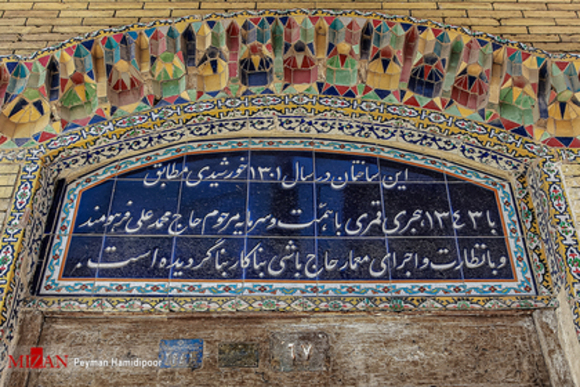 این ساختمان در سال ۱۳۰۱ خورشیدی مطابق
با ۱۳۴۳ هجری قمری با همّت و سرمایه مرحوم حاج محمد علی فرهومند
و با نظارت و اجرای معمار حاج باشی بناکار بنا گردیده است.
۶۷
MIZAN Peyman Hamidipoor